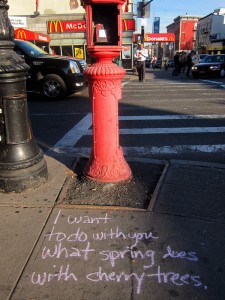 McDo
McDonald's
I want
to do with you
what spring does
with cherry trees.